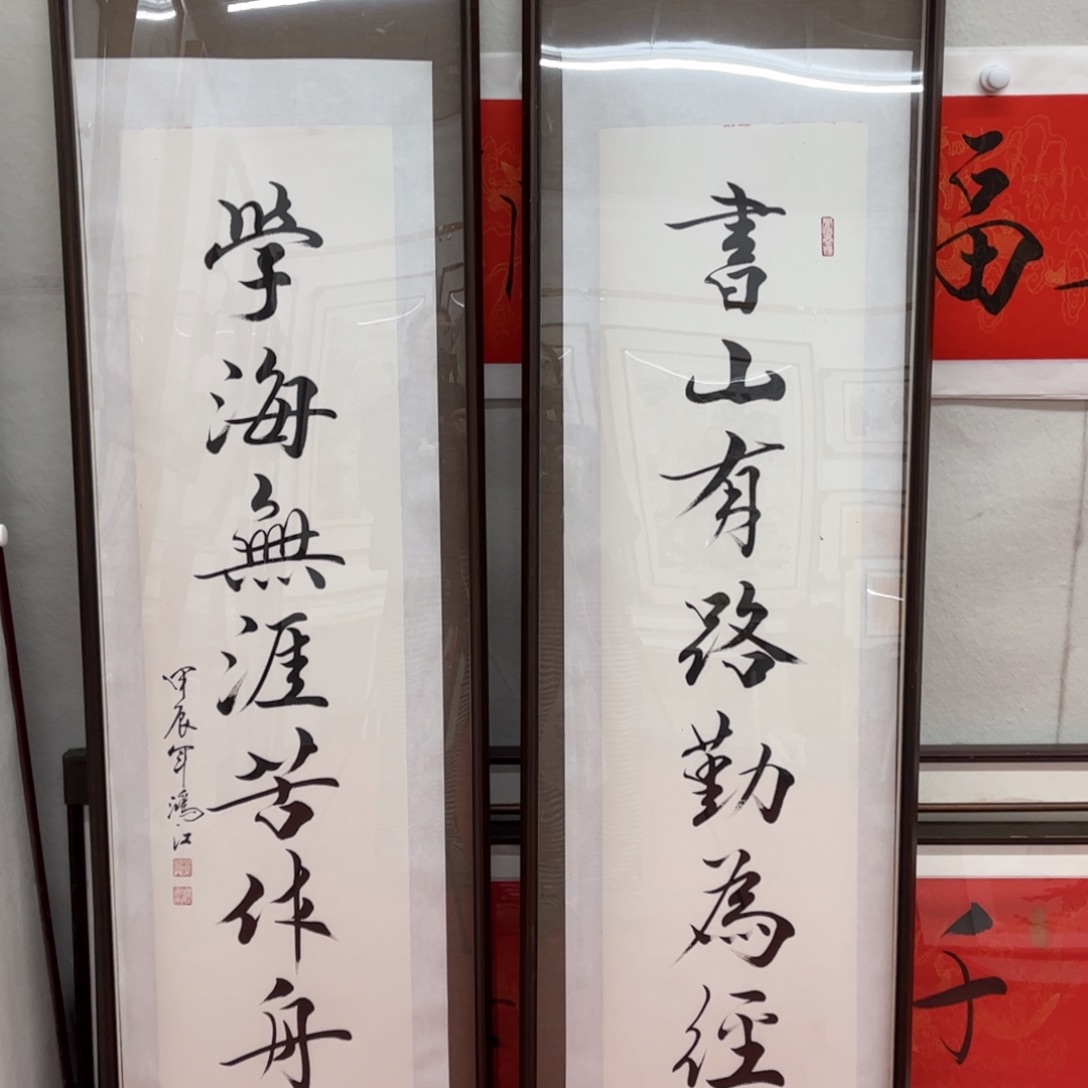 書山有路勤為徑
學海無涯苦作舟
甲辰年鴻江
福
千